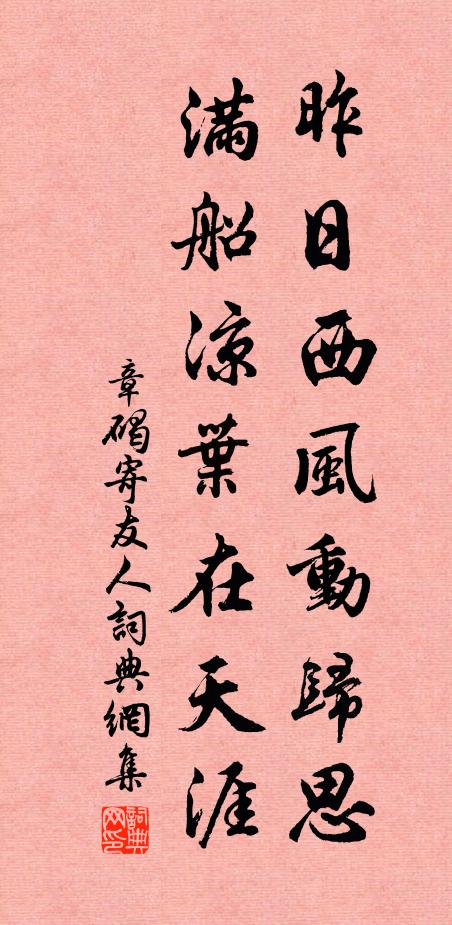 昨日西風動歸思
滿船涼葉在天涯
章碣寄友人詞典網集
詞典網印